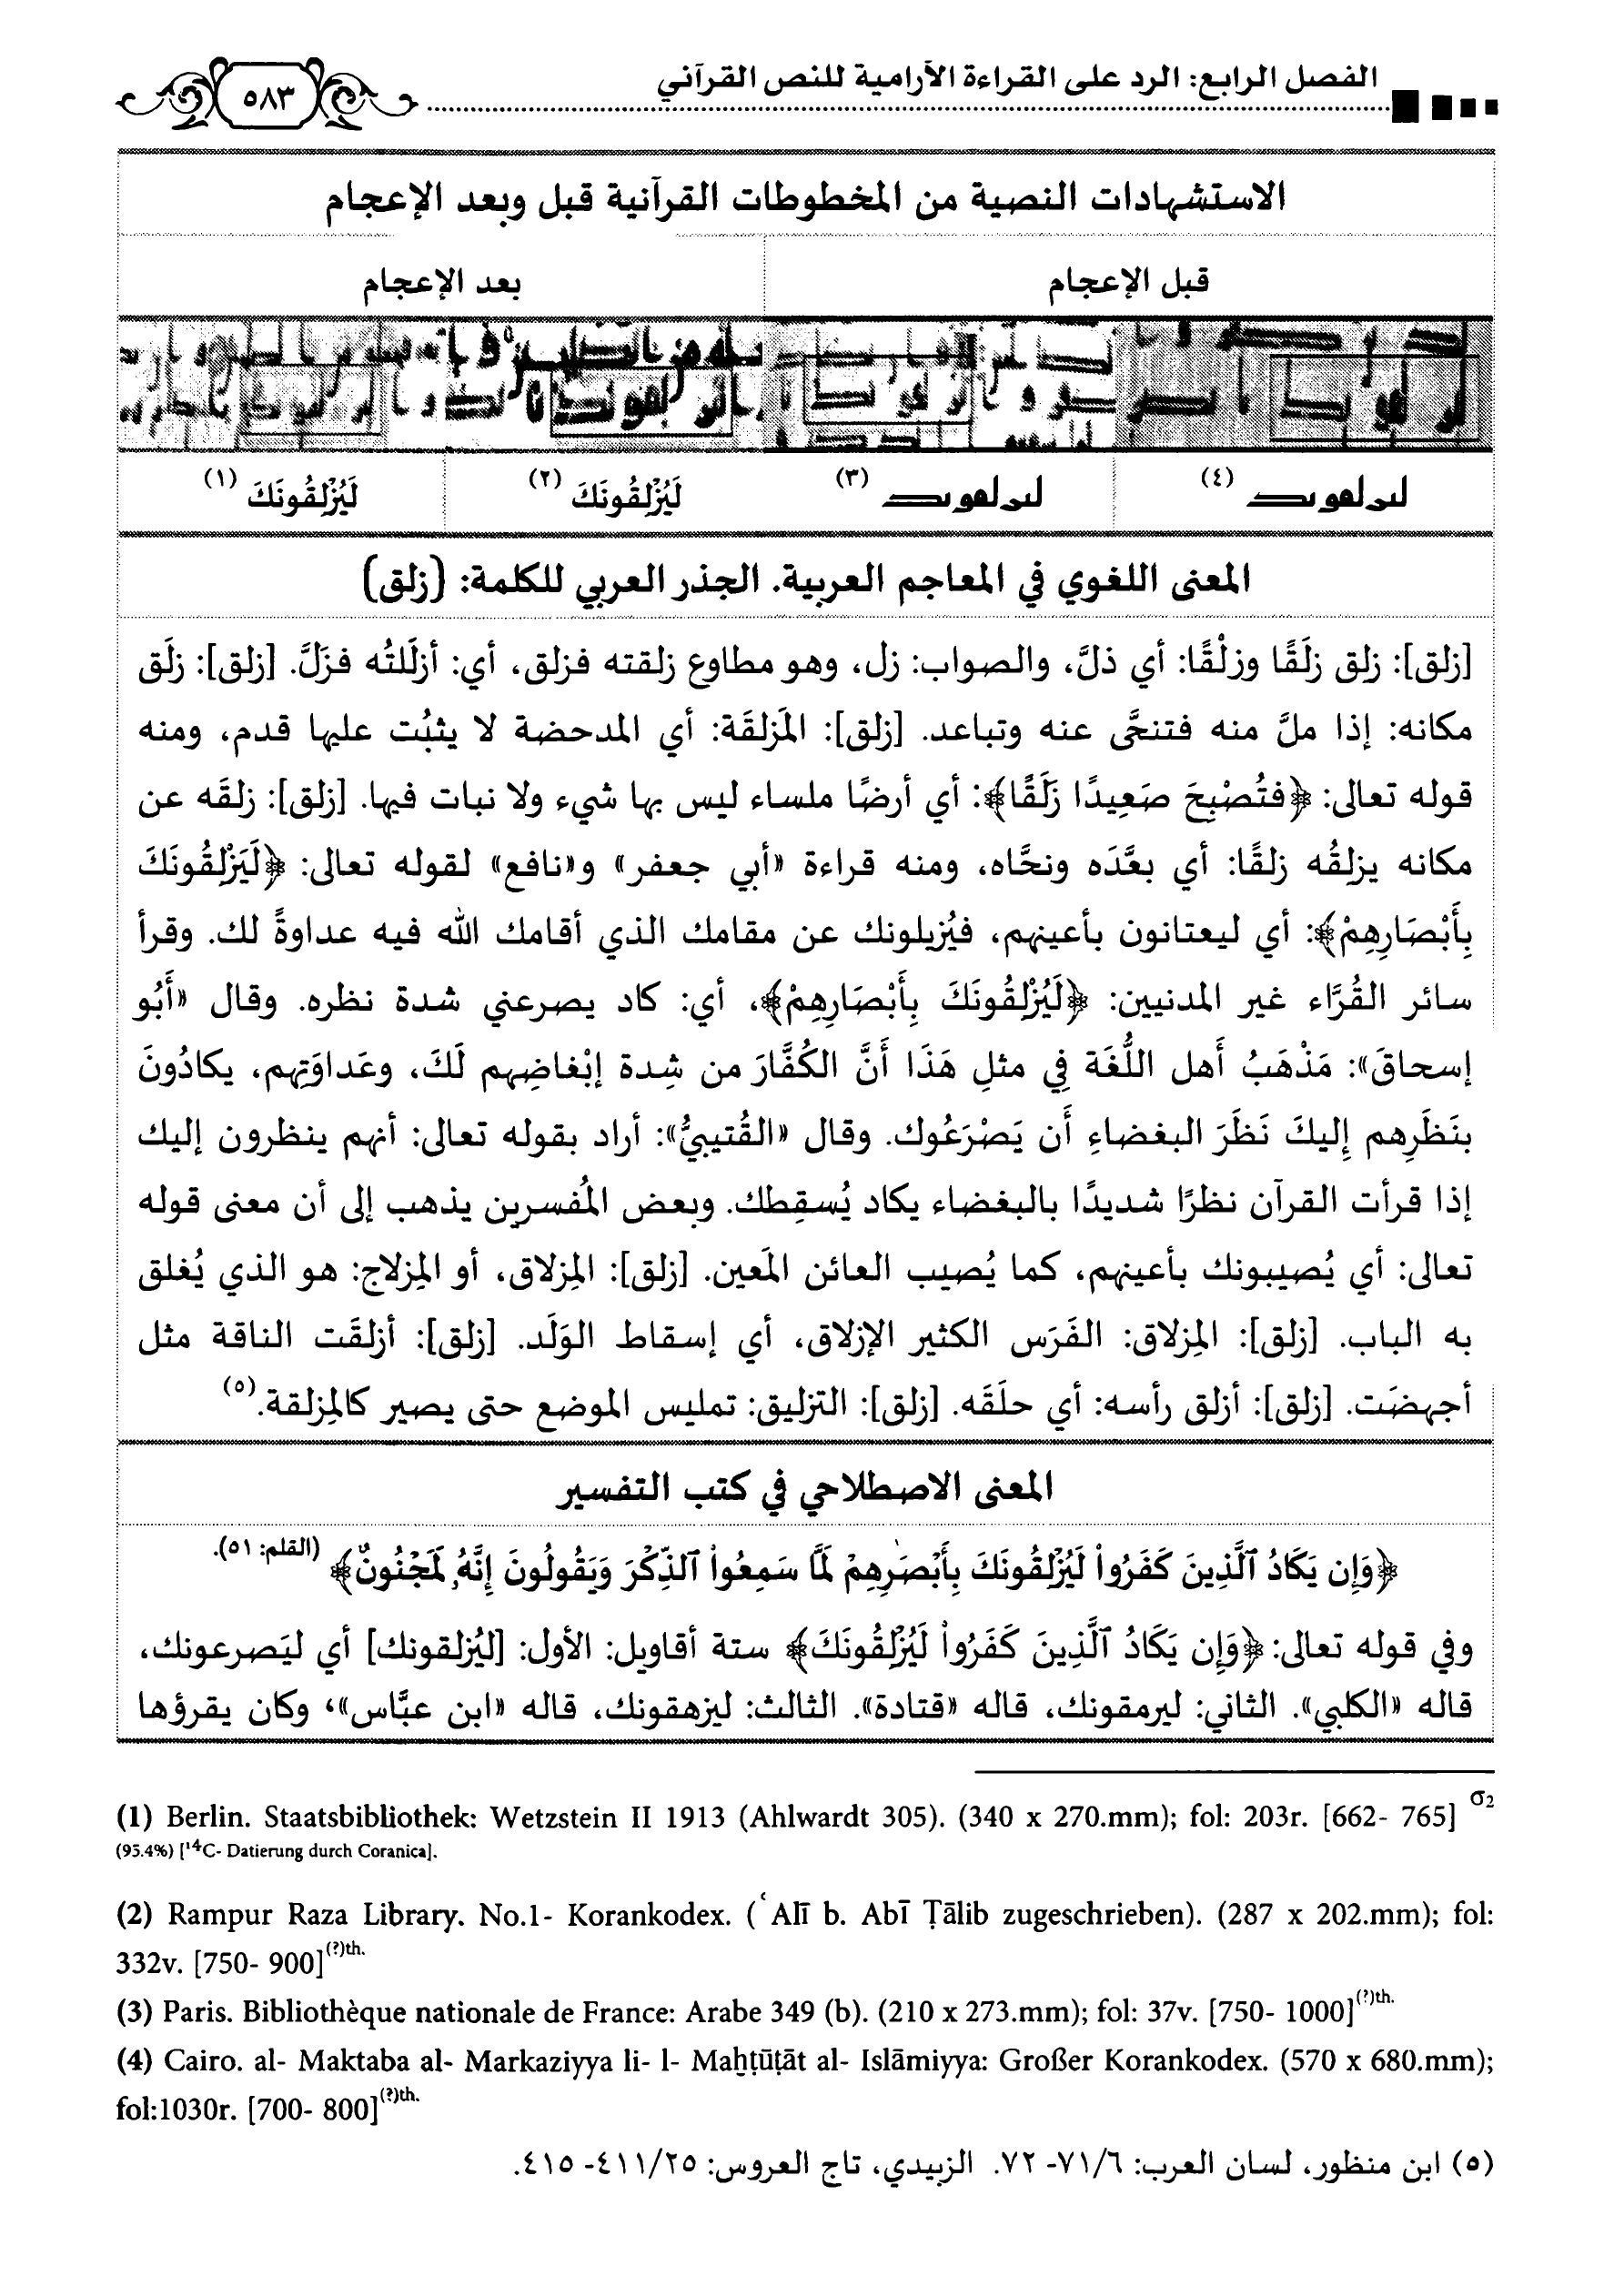 الفصل الرابع: الرد على القراءة الآرامية للنص القرآني
٥٨٣
الاستشهادات النصية من المخطوطات القرآنية قبل وبعد الإعجام
قبل الإعجام
بعد الإعجام
(٤)
(٣)
لَيُزْلِقُونَكَ (٢)
لَيُزْلِقُونَكَ (١)
المعنى اللغوي في المعاجم العربية. الجذر العربي للكلمة: (زلق)
[زلق]: زلق زلَقًا وزلْقًا: أي ذلَّ، والصواب: زل، وهو مطاوع زلقته فزلق، أي: أزلَلتُه فزَلَّ. [زلق]: زلَق
مكانه: إذا ملَّ منه فتنحَّى عنه وتباعد. [زلق]: المَزلقَة: أي المدحضة لا يثبُت عليها قدم، ومنه
قوله تعالى: ﴿فتُصْبِحَ صَعِيدًا زَلَقًا﴾: أي أرضًا ملساء ليس بها شيء ولا نبات فيها. [زلق]: زلقَه عن
مكانه يزلِقُه زلقًا: أي بعَّدَه ونحَّاه، ومنه قراءة «أبي جعفر» و«نافع» لقوله تعالى: ﴿لَيَزْلِقُونَكَ
بِأَبْصَارِهِمْ﴾: أي ليعتانون بأعينهم، فيُزيلونك عن مقامك الذي أقامك الله فيه عداوةً لك. وقرأ
سائر القُرَّاء غير المدنيين: ﴿لَيُزْلِقُونَكَ بِأَبْصَارِهِمْ﴾، أي: كاد يصرعني شدة نظره. وقال «أَبُو
إسحاقَ»: مَذْهَبُ أَهل اللُّغَة فِي مثلِ هَذَا أَنَّ الكُفَّارَ من شِدة إبْغاضِهم لَكَ، وعَداوَتِهم، يكادُونَ
بنَظَرِهم إِليكَ نَظَرَ البغضاءِ أَن يَصْرَعُوك. وقال «القُتيبيُّ»: أراد بقوله تعالى: أنهم ينظرون إليك
إذا قرأت القرآن نظرًا شديدًا بالبغضاء يكاد يُسقِطك. وبعض المُفسرين يذهب إلى أن معنى قوله
تعالى: أي يُصيبونك بأعينهم، كما يُصيب العائن المَعين. [زلق]: المِزلاق، أو المِزلاج: هو الذي يُغلق
به الباب. [زلق]: المِزلاق: الفَرَس الكثير الإزلاق، أي إسقاط الوَلَد. [زلق]: أزلقَت الناقة مثل
أجهضَت. [زلق]: أزلق رأسه: أي حلَقَه. [زلق]: التزليق: تمليس الموضع حتى يصير كالمِزلقة. (٥)
المعنى الاصطلاحي في كتب التفسير
﴿وَإِن يَكَادُ ٱلَّذِينَ كَفَرُوا۟ لَيُزْلِقُونَكَ بِأَبْصَٰرِهِمْ لَمَّا سَمِعُوا۟ ٱلذِّكْرَ وَيَقُولُونَ إِنَّهُۥ لَمَجْنُونٌ﴾ (القلم: ٥١).
وفي قوله تعالى: ﴿وَإِن يَكَادُ ٱلَّذِينَ كَفَرُوا۟ لَيُزْلِقُونَكَ﴾ ستة أقاويل: الأول: [ليُزلقونك] أي ليَصرعونك،
قاله «الكلبي». الثاني: ليرمقونك، قاله «قتادة». الثالث: ليزهقونك، قاله «ابن عبَّاس»، وكان يقرؤها
(1) Berlin. Staatsbibliothek: Wetzstein II 1913 (Ahlwardt 305). (340 x 270.mm); fol: 203r. [662- 765] σ2
(95.4%) [¹⁴C- Datierung durch Coranica].
(2) Rampur Raza Library. No.1- Korankodex. (ʿAlī b. Abī Ṭālib zugeschrieben). (287 x 202.mm); fol:
332v. [750- 900](?)th.
(3) Paris. Bibliothèque nationale de France: Arabe 349 (b). (210 x 273.mm); fol: 37v. [750- 1000](?)th.
(4) Cairo. al- Maktaba al- Markaziyya li- l- Maḫṭūṭāt al- Islāmiyya: Großer Korankodex. (570 x 680.mm);
fol:1030r. [700- 800](?)th.
(٥) ابن منظور، لسان العرب: ٧١/٦- ٧٢. الزبيدي، تاج العروس: ٤١١/٢٥- ٤١٥.